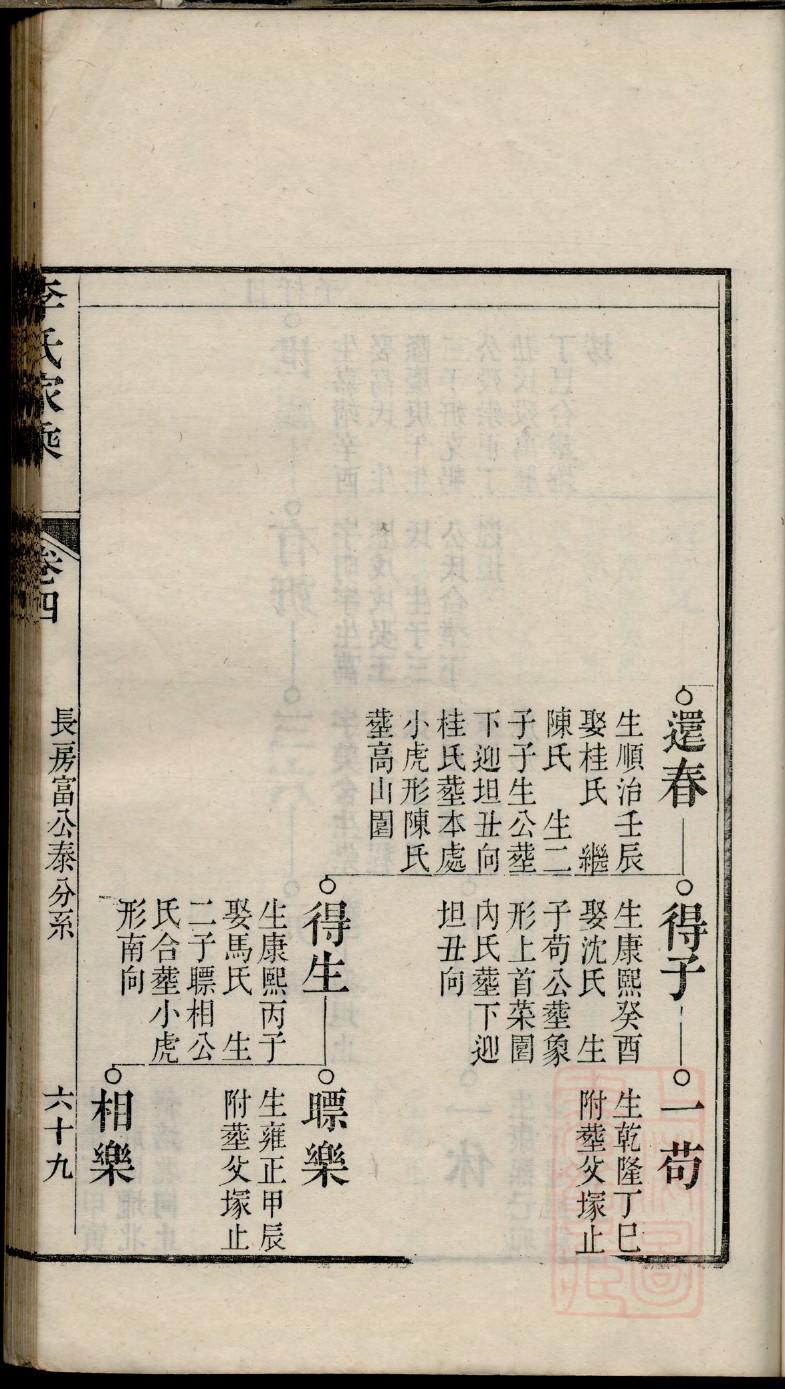 還春
生順治壬辰
娶桂氏 繼
陳氏 生二
子子生公塟
下迎坦丑向
桂氏塟本處
小虎形陳氏
塟高山圍
得子
生康熙癸酉
娶沈氏 生
子苟公塟象
形上首菜園
內氏塟下迎
坦丑向
一苟
生乾隆丁巳
附塟父塚止
得生
生康熙丙子
娶馬氏 生
二子瞟相公
氏合塟小虎
形南向
瞟樂
生雍正甲辰
附塟父塚止
相樂
李氏家乘
卷四
長房富公泰分系
六十九